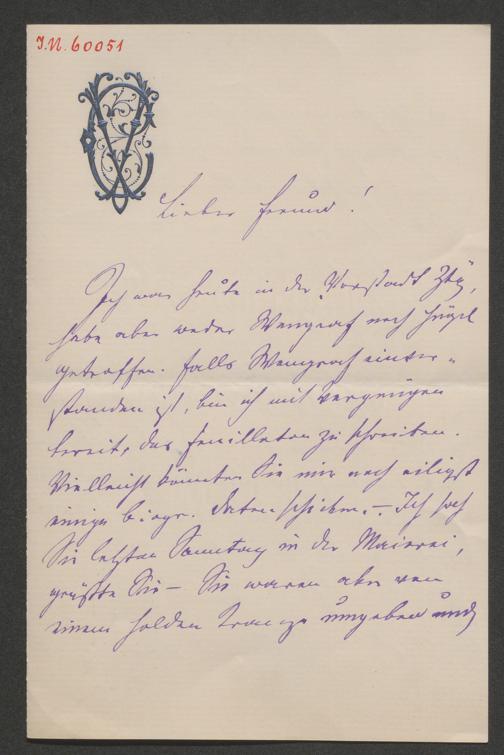 I.N. 60051
Lieber Freund!
Ich war heute in der „Vorstadt Ztg,
habe aber weder Wengraf noch Hügel
getroffen. Falls Wengraf einver-
standen ist, bin ich mit Vergnügen
bereit, das Feuilleton zu schreiben.
Vielleicht könnten Sie mir noch eiligst
einige biogr. Daten schicken. – Ich sah
Sie letzten Sonntag in der Meierei,
grüßte Sie – Sie waren aber von
einem holden Kranze umgeben und